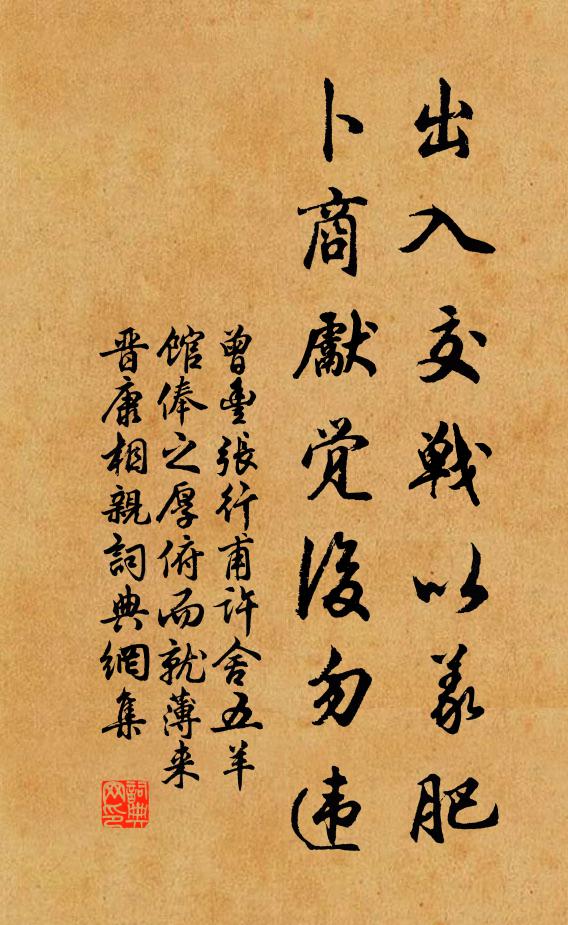 出入交戰以義肥
卜商獻觉後勿违
曾豊張行甫許舍五羊
館俸之厚俯而就薄来
晋康相親詞典網集
詞典网印